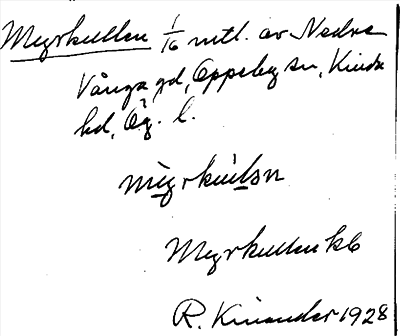 Myrkullen 1/16 mtl. av Nedre
Vånga gd, Oppeby sn, Kinda
hd, Ög. l.
myrkulsn
Myrkullen kb
R. Kinander 1928